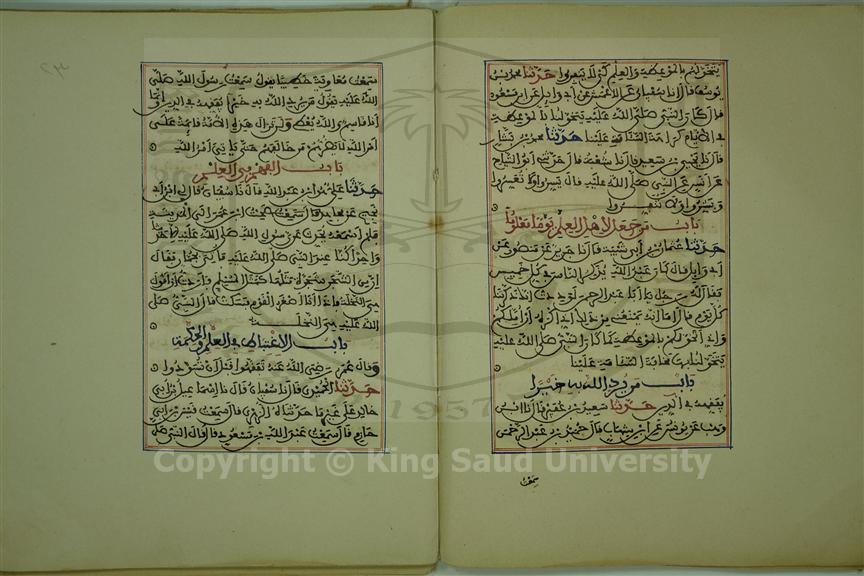 يتخولهم بالموعظة والعلم كي لا ينفروا حدثنا محمد بن
يوسف قال أنا سفيان عن الأعمش عن أبي وايل عن ابن مسعود
قال كان النبي صلى الله عليه يتخولنا بالموعظة
في الأيام كراهة السآمة علينا حدثنا محمد بن بشار
قال نا يحيى بن سعيد قال نا شعبة قال حدثني أبو التياح
عن أنس عن النبي صلى الله عليه قال يسروا ولا تعسروا
وبشروا ولا تنفروا
باب من جعل لأهل العلم يوما معلوما
حدثنا عثمان بن أبي شيبة قال نا جرير عن منصور عن
أبي وايل قال كان عبد الله يذكر الناس في كل خميس
فقال له رجل يا أبا عبد الرحمن لوددت أنك ذكرتنا
كل يوم قال أما إنه يمنعني من ذلك أني أكره أن أملكم
وإني أتخولكم بالموعظة كما كان النبي صلى الله عليه
يتخولنا بها مخافة السآمة علينا
باب من يرد الله به خيرا
يفقهه في الدين حدثنا سعيد بن عفير قال نا ابن
وهب عن يونس عن ابن شهاب قال قال حميد بن عبد الرحمن
سمعت
٢٣
سمعت معاوية خطيبا يقول سمعت رسول الله صلى
الله عليه يقول من يرد الله به خيرا يفقهه في الدين وإنما
أنا قاسم والله يعطي ولن تزال هذه الأمة قايمة على
أمر الله لا يضرهم من خالفهم حتى يأتي أمر الله
باب الفهم في العلم
حدثنا علي بن عبد الله قال نا سفيان قال قال لي ابن أبي
نجيح عن مجاهد قال صحبت ابن عمر إلى المدينة
فلم أسمعه يحدث عن رسول الله صلى الله عليه إلا حديثا
واحدا كنا عند النبي صلى الله عليه فأتي بجمار فقال
إن من الشجر شجرة مثلها كمثل المسلم فأردت أن أقول
هي النخلة فإذا أنا أصغر القوم فسكت فقال النبي صلى
الله عليه هي النخلة
باب الاغتباط في العلم والحكمة
وقال عمر رضي الله عنه تفقهوا قبل أن تسودوا
حدثنا الحميدي قال نا سفيان قال نا إسماعيل بن أبي
خالد على غير ما حدثناه الزهري قال سمعت قيس بن أبي
حازم قال سمعت عبد الله بن مسعود قال قال النبي صلى
1957
Copyright © King Saud University